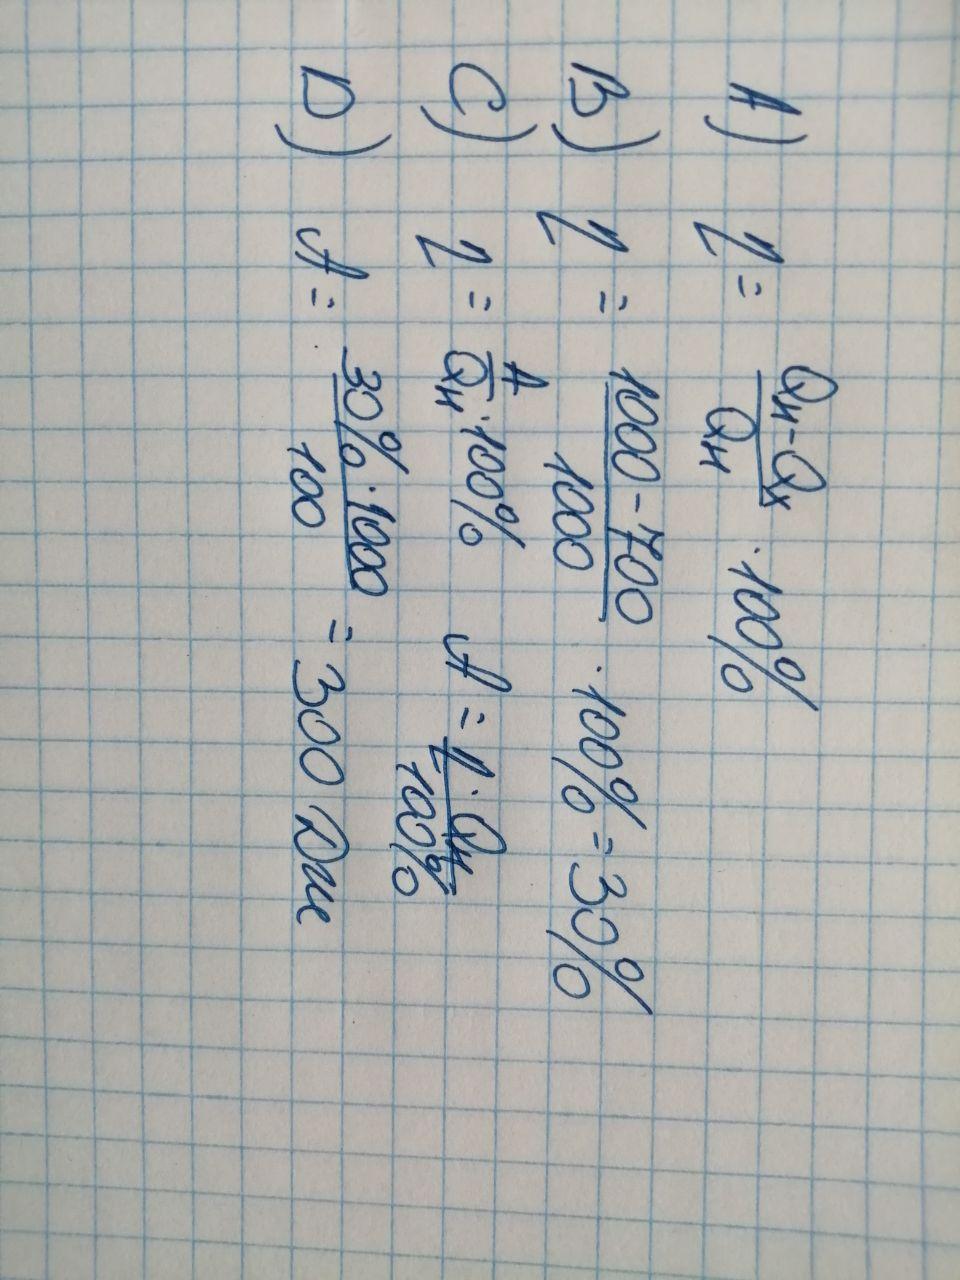 A) η = (Qн - Qх) / Qн · 100%
B) η = (1000 - 700) / 1000 · 100% = 30%
C) η = A / Qн · 100% A = η · Qн / 100%
D) A = 30% · 1000 / 100 = 300 Дж